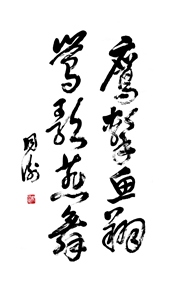 鹰击鱼翔
莺歌燕舞